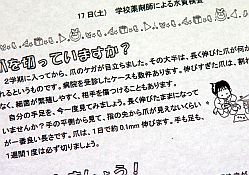 17日(土) 学校薬剤師による水質検査
爪を切っていますか?
2学期に入ってから、爪のケガが目立ちました。その大半は、長く伸びた爪が
れるというものです。病院を受診したケースも数件あります。伸びすぎた爪は、割れ
なく、細菌が繁殖しやすく、相手を傷つけることもあります。
自分の手足を、今一度見てみましょう。長く伸びたままになって
いませんか?手の平側から見て、指の先から爪が見えないくらい
が一番良い長さです。爪は、1日で約0.1mm伸びます。手も足も、
1週間1度は必ず切りましょう。
ましょう!